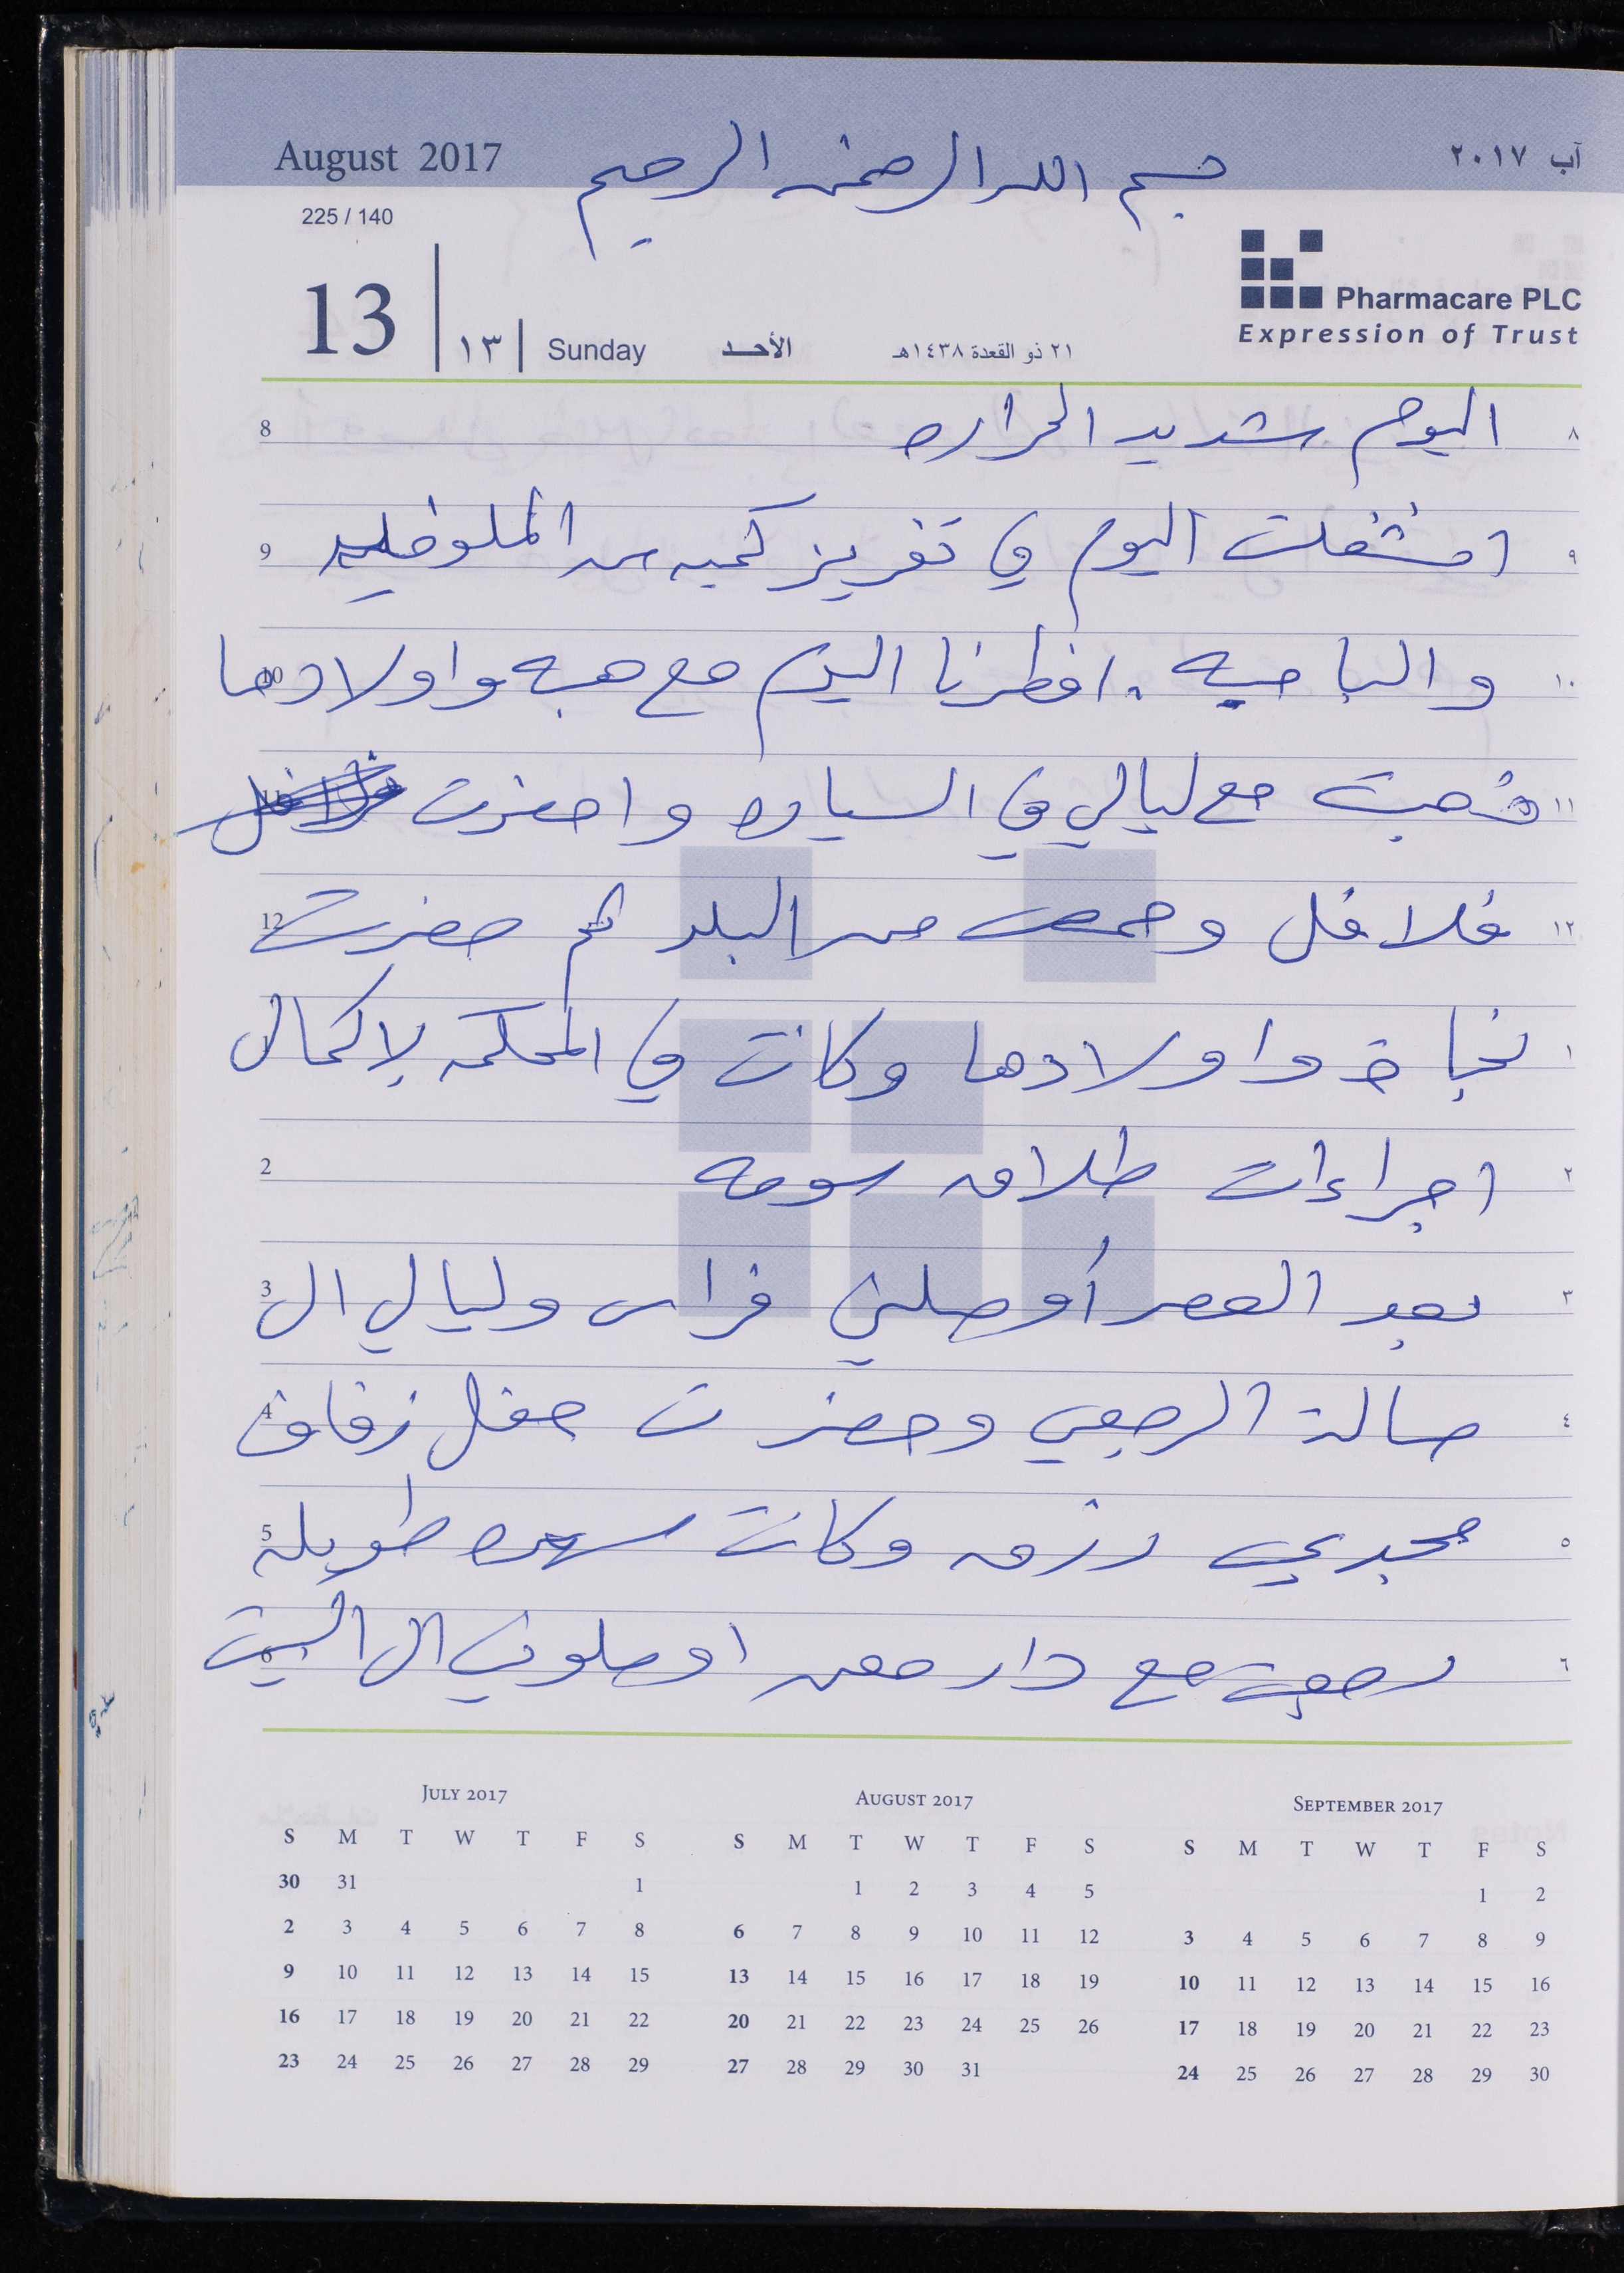 August 2017
بسم الله الرحمن الرحيم
آب ٢٠١٧
225 / 140
13 ١٣ Sunday الأحد ٢١ ذو القعدة ١٤٣٨هـ
Pharmacare PLC
Expression of Trust
8 اليوم شديد الحراره ٨
9 انشغلت اليوم في تفريز كميه من الملوخيه ٩
10 والباميه . افطرنا اليوم مع هبه واولادها ١٠
11 ذهبت مع ليالي في السياره واحضرت فلافل ١١
12 فلافل وحمص من البلد ثم حضرت ١٢
1 نجاح واولادها وكانت في المحكمه لإكمال ١
2 اجراءات طلاق سومه ٢
3 بعد العصر أوصلني فراس وليالي الى ٣
4 صالة الرجعي وحضرت حفل زفاف ٤
5 مجدي رزق وكانت سهره طويله ٥
6 رجعت مع دار معن اوصلوني الى البيت ٦
July 2017
S M T W T F S
30 31 1
2 3 4 5 6 7 8
9 10 11 12 13 14 15
16 17 18 19 20 21 22
23 24 25 26 27 28 29
August 2017
S M T W T F S
1 2 3 4 5
6 7 8 9 10 11 12
13 14 15 16 17 18 19
20 21 22 23 24 25 26
27 28 29 30 31
September 2017
S M T W T F S
1 2
3 4 5 6 7 8 9
10 11 12 13 14 15 16
17 18 19 20 21 22 23
24 25 26 27 28 29 30